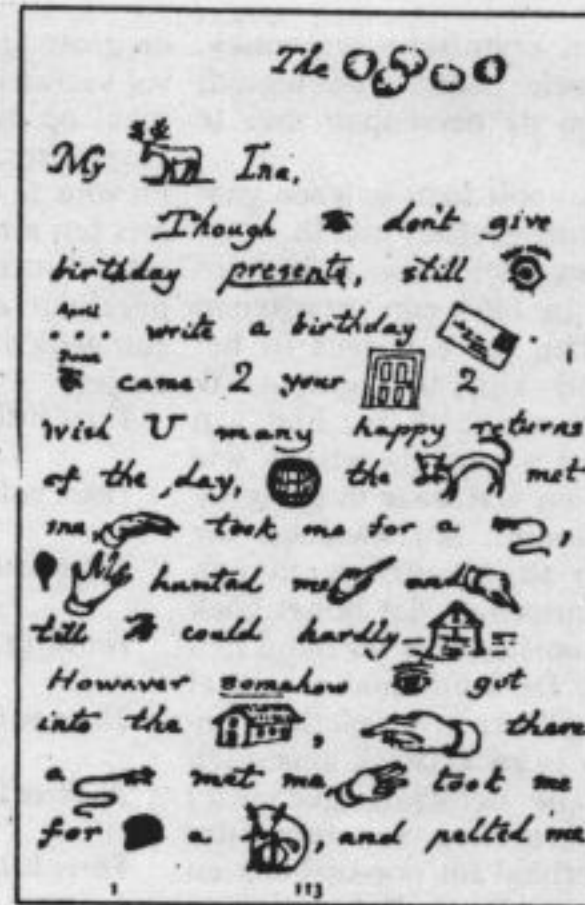 The
My Ina,
Though don't give
birthday presents, still
April
... write a birthday
June
came 2 your 2
wish U many happy returns
of the day, the met
me, took me for a ,
hunted me and
till could hardly
However somehow got
into the , there
a met me, took me
for a , and pelted me
113